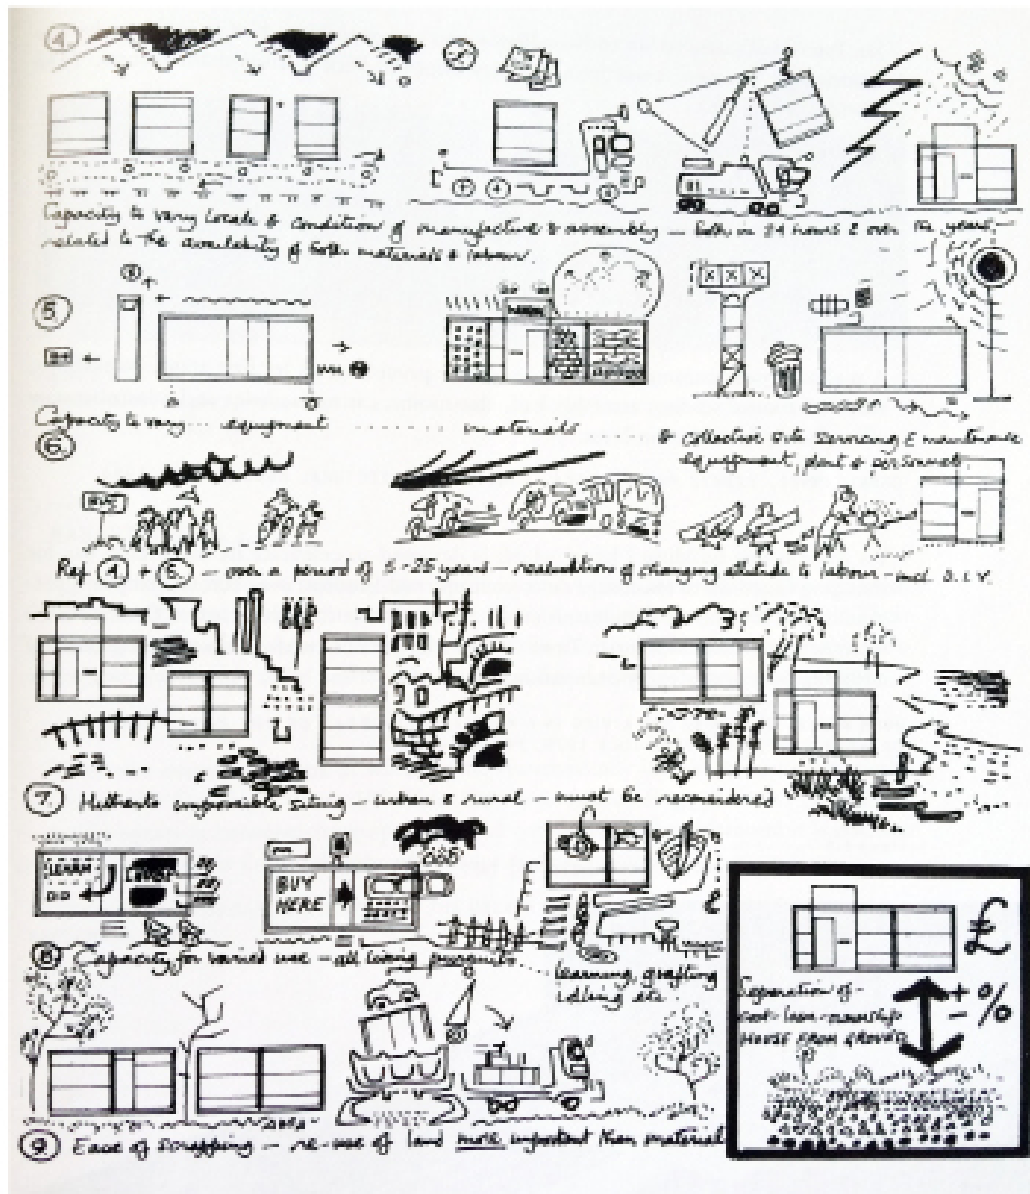 4.
Capacity to vary locale & condition of manufacture & assembly — both in 24 hours & over the years, —
related to the availability of both materials & labour.
5.
Capacity to vary ... equipment ........ materials .....
& collective site servicing & maintenance
equipment, plant & personnel.
6.
BUS
Ref 4 + 5. — over a period of 5-25 years — realisation of changing attitude to labour — incl. D.I.Y.
7 Hitherto impossible siting — urban & rural — must be reconsidered
LEARN
DO
BUY
HERE
8 Capacity for varied use — all living pursuits ...
learning, grafting
idling etc.
£
+ %
-
Separation of —
cost-loan-ownership
HOUSE FROM GROUND
9 Ease of scrapping — re-use of land more important than material